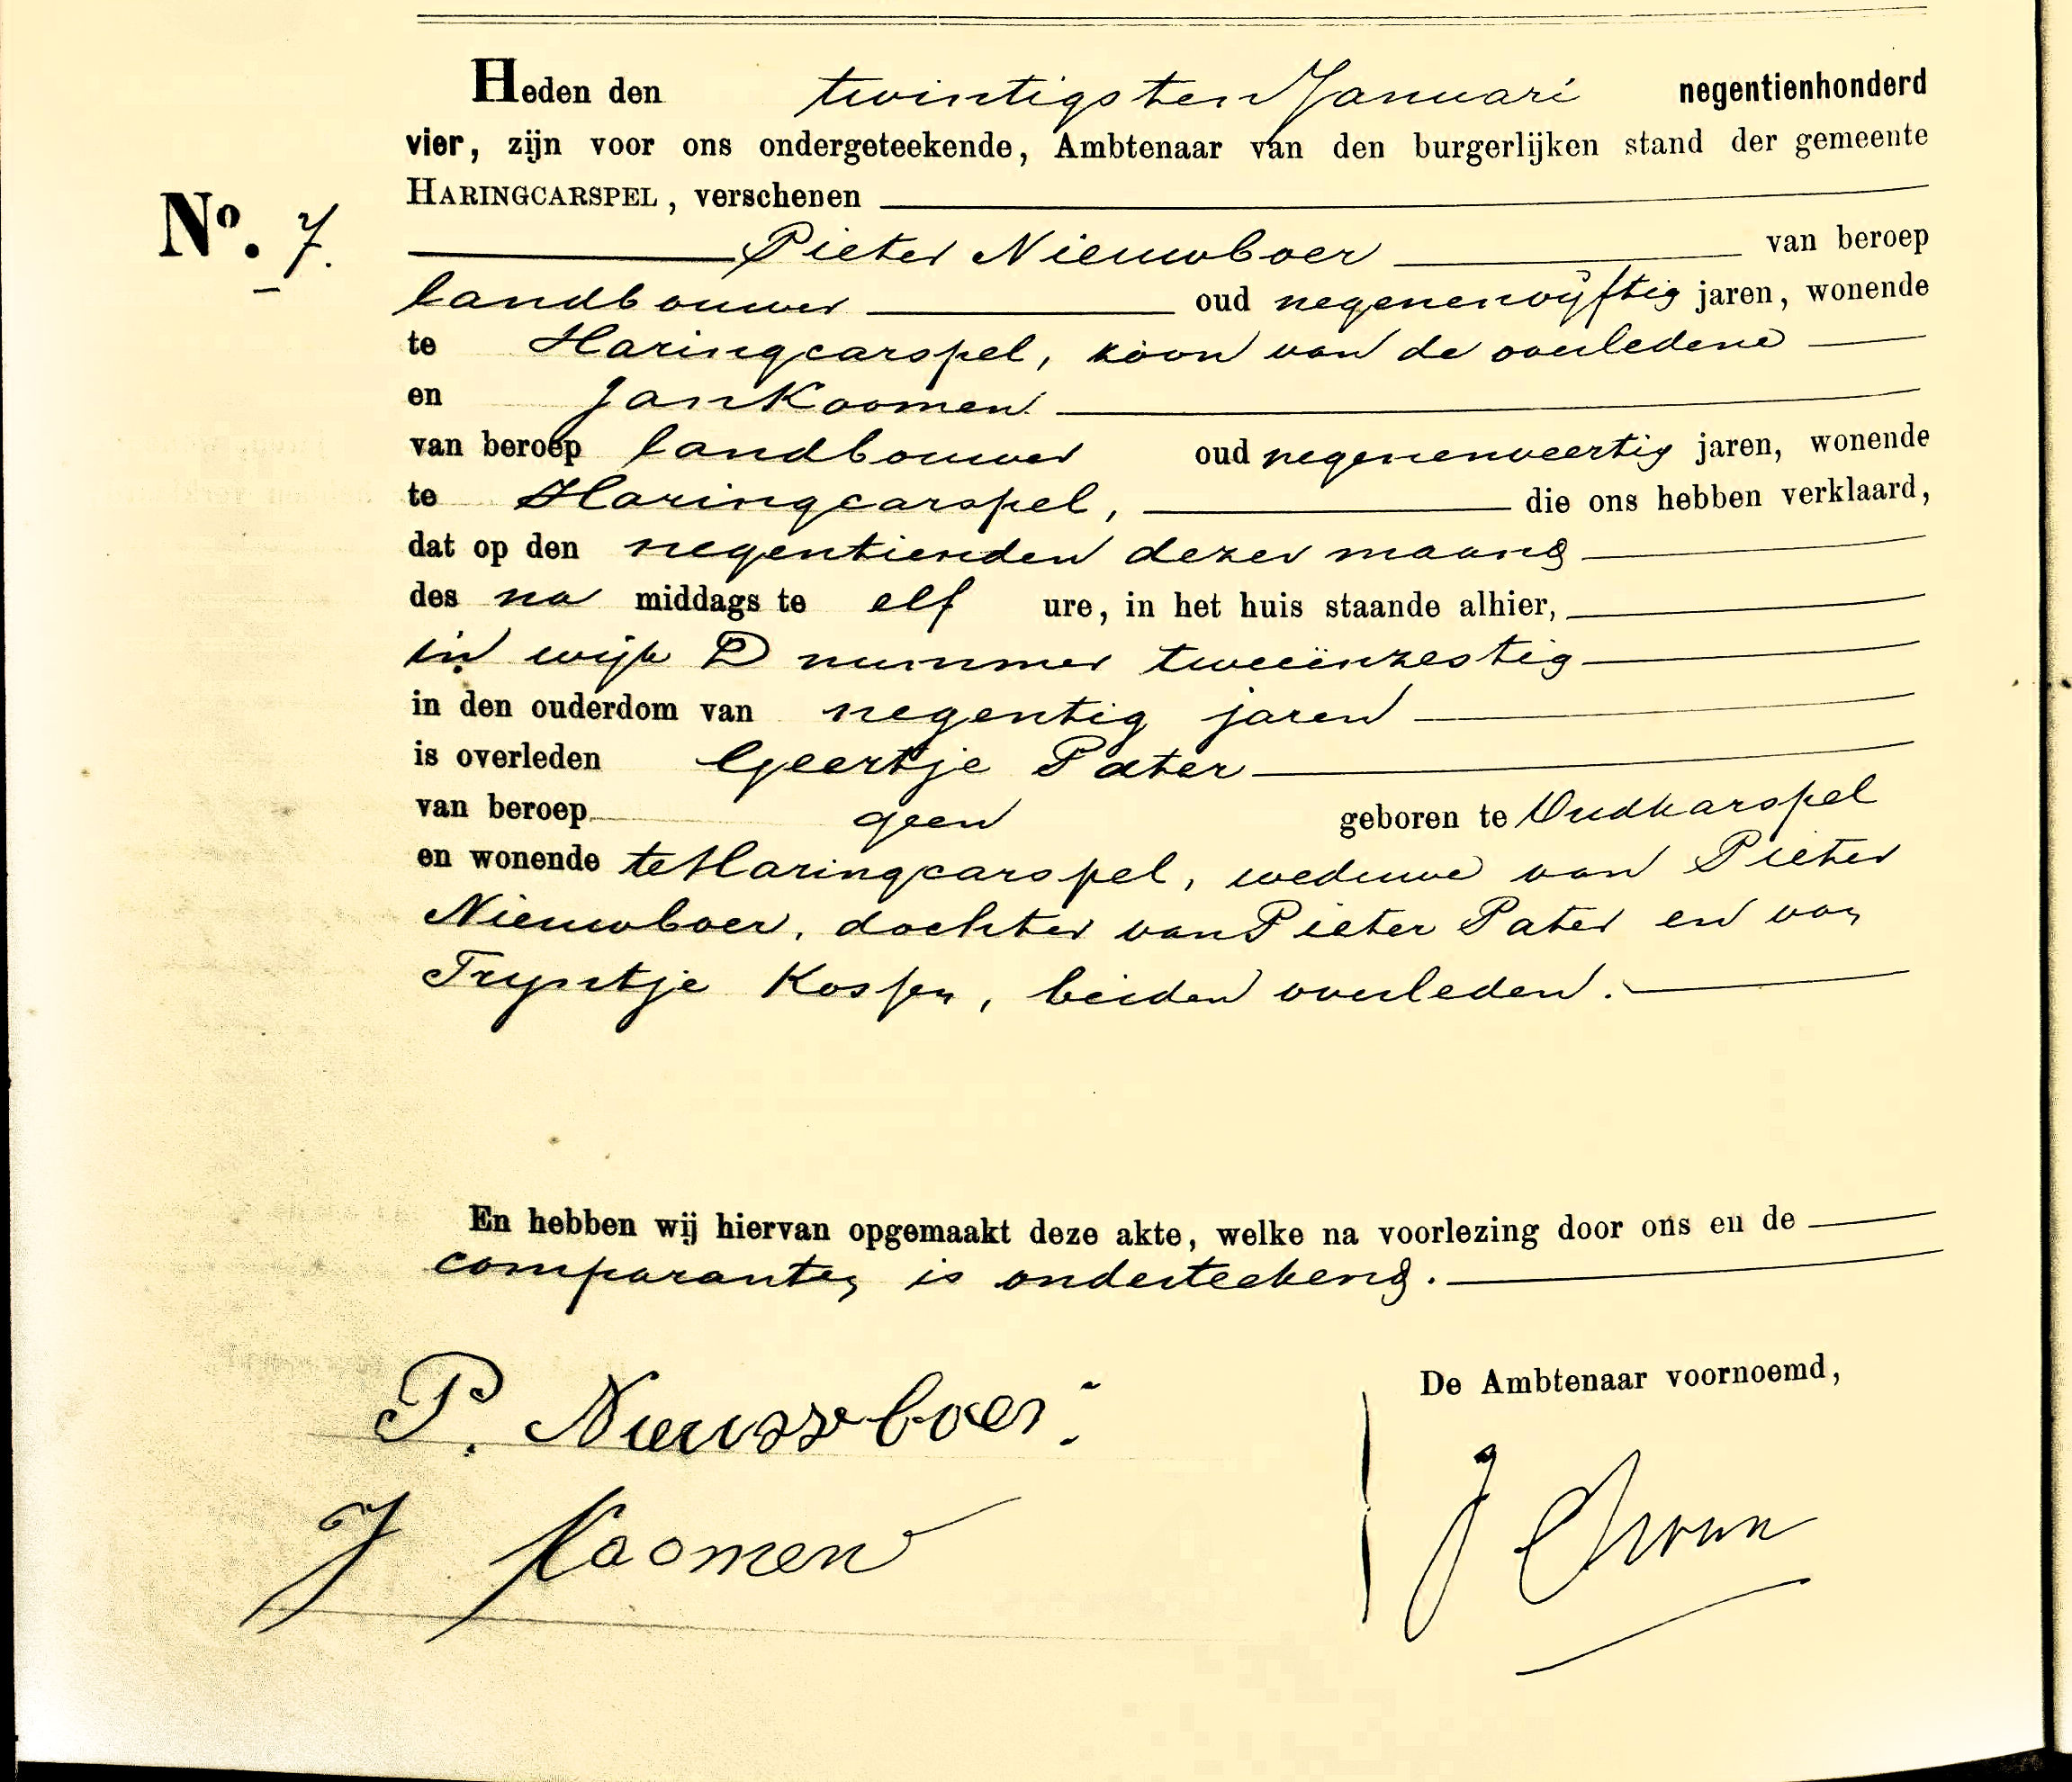 Heden den twintigsten Januari negentienhonderd
vier, zijn voor ons ondergeteekende, Ambtenaar van den burgerlijken stand der gemeente
HARINGCARSPEL, verschenen
No. 7.
Pieter Nieuwboer van beroep
landbouwer oud negenenvijftig jaren, wonende
te Haringcarspel, zoon van de overledene
en Jan Koomen
van beroep landbouwer oud negenenveertig jaren, wonende
te Haringcarspel, die ons hebben verklaard,
dat op den negentienden dezer maand
des na middags te elf ure, in het huis staande alhier,
in wijk D nummer tweeënzestig
in den ouderdom van negentig jaren
is overleden Geertje Pater
van beroep geen geboren te Oudkarspel
en wonende te Haringcarspel, weduwe van Pieter
Nieuwboer, dochter van Pieter Pater en van
Tryntje Kossen, beiden overleden.
En hebben wij hiervan opgemaakt deze akte, welke na voorlezing door ons en de
comparanten is onderteekend.
De Ambtenaar voornoemd,
P. Nieuwboer
J Koomen
J